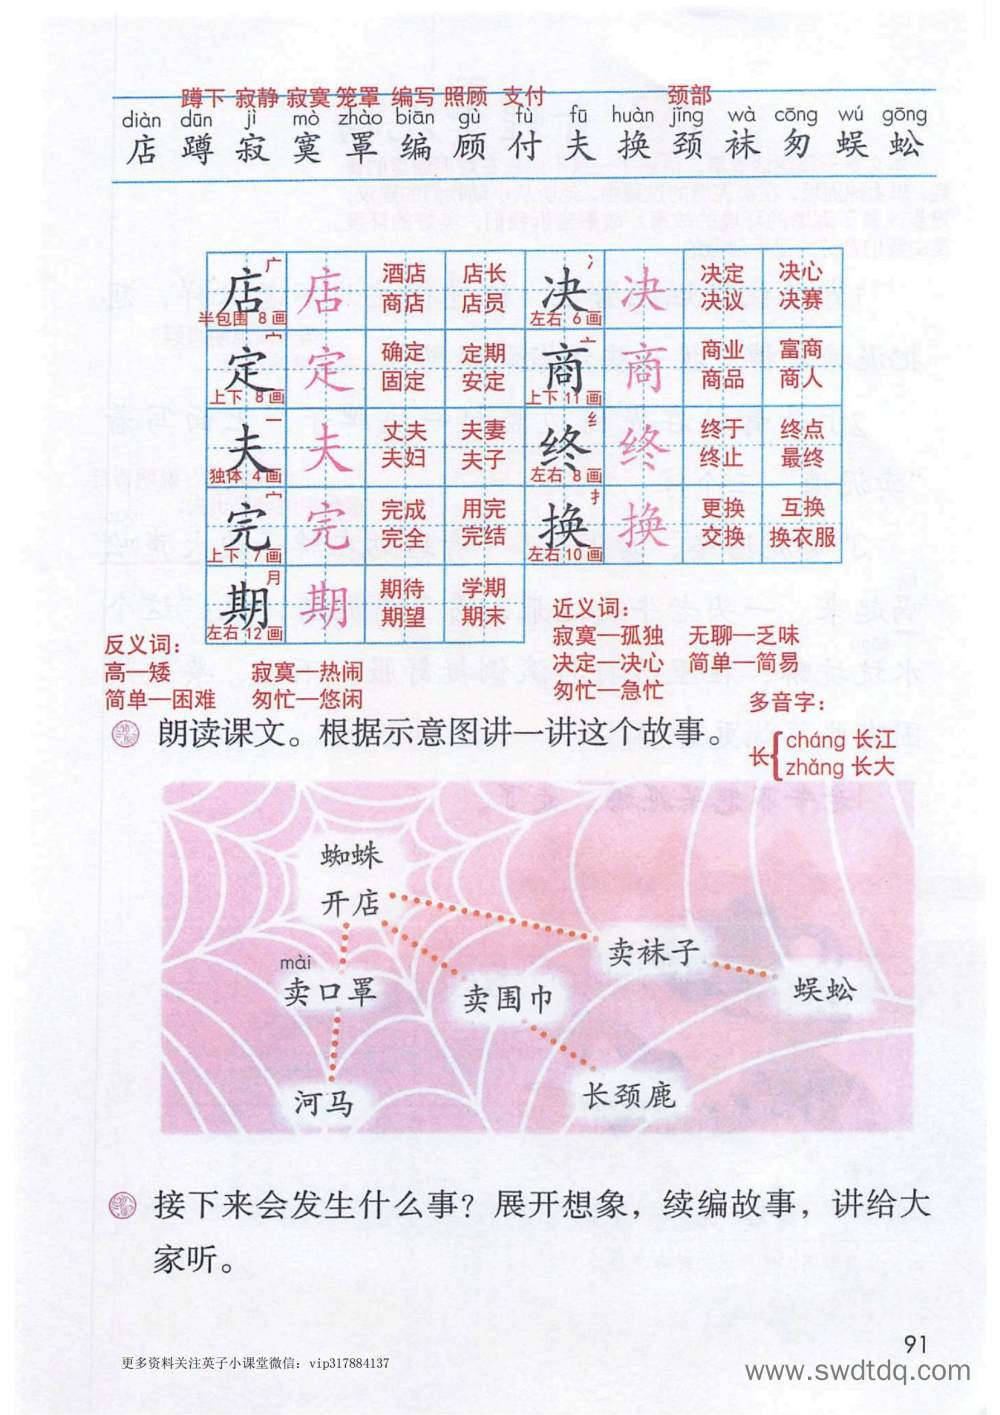 蹲下 寂静 寂寞 笼罩 编写 照顾 支付 颈部
diàn dūn jì mò zhào biān gù fù fū huàn jǐng wà cōng wú gōng
店 蹲 寂 寞 罩 编 顾 付 夫 换 颈 袜 匆 蜈 蚣
店 广 半包围 8画 店 酒店 店长 商店 店员
决 冫 左右 6画 决 决定 决心 决议 决赛
定 宀 上下 8画 定 确定 定期 固定 安定
商 亠 上下 11画 商 商业 富商 商品 商人
夫 一 独体 4画 夫 丈夫 夫妻 夫妇 夫子
终 纟 左右 8画 终 终于 终点 终止 最终
完 宀 上下 7画 完 完成 用完 完全 完结
换 扌 左右 10画 换 更换 互换 交换 换衣服
期 月 左右 12画 期 期待 学期 期望 期末
反义词：
高—矮 寂寞—热闹
简单—困难 匆忙—悠闲
近义词：
寂寞—孤独 无聊—乏味
决定—决心 简单—简易
匆忙—急忙
多音字：
长 cháng 长江
zhǎng 长大
朗读课文。根据示意图讲一讲这个故事。
蜘蛛
开店
卖袜子
mài
卖口罩
卖围巾
蜈蚣
河马
长颈鹿
接下来会发生什么事？展开想象，续编故事，讲给大
家听。
91
更多资料关注英子小课堂微信：vip317884137
www.swdtdq.com